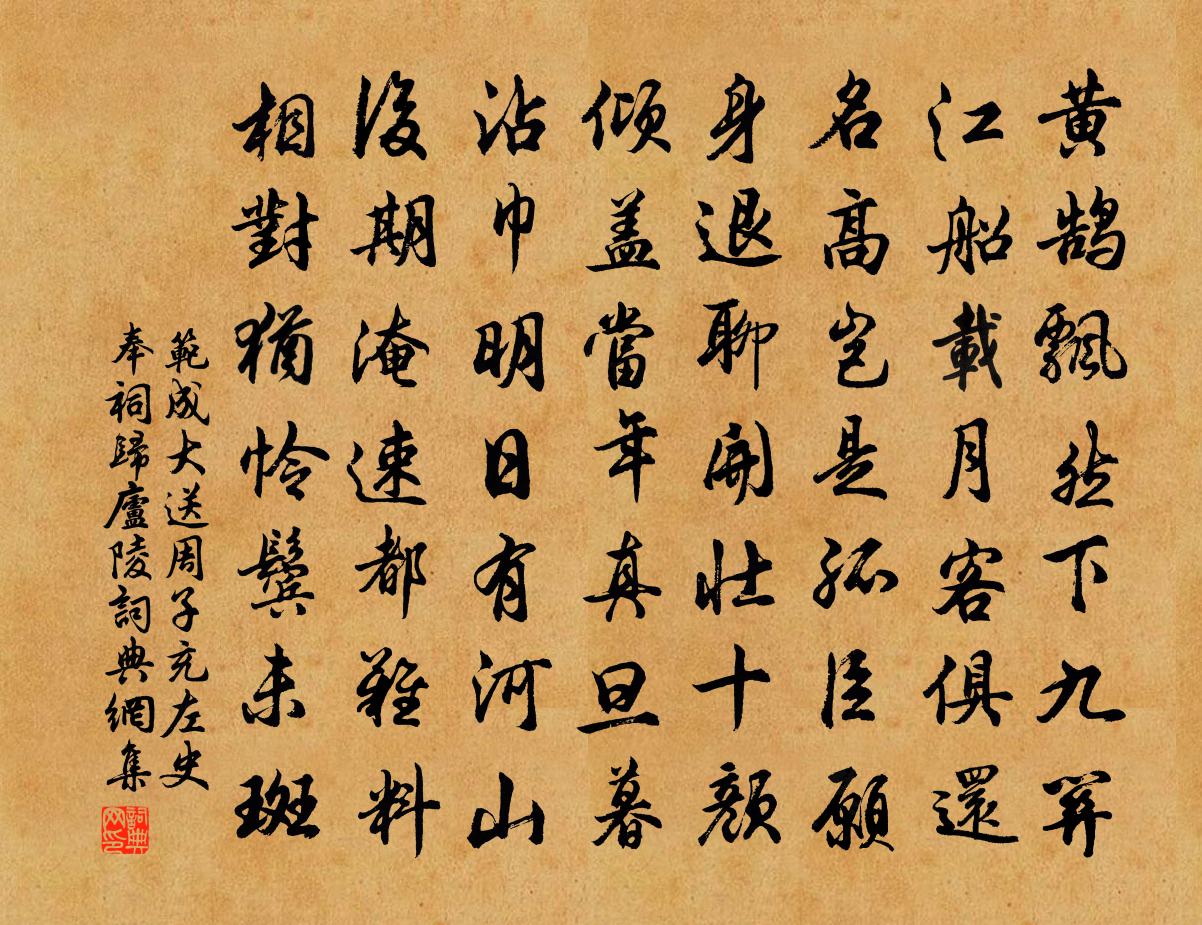 黄鹄飄然下九關
江船載月客俱還
名高豈是孤臣願
身退聊開壯十顔
傾盖當年真旦暮
沾巾明日有河山
後期淹速都難料
相對猶怜鬢未斑
範成大送周子充左史
奉祠歸廬陵詞典網集
詞典网印